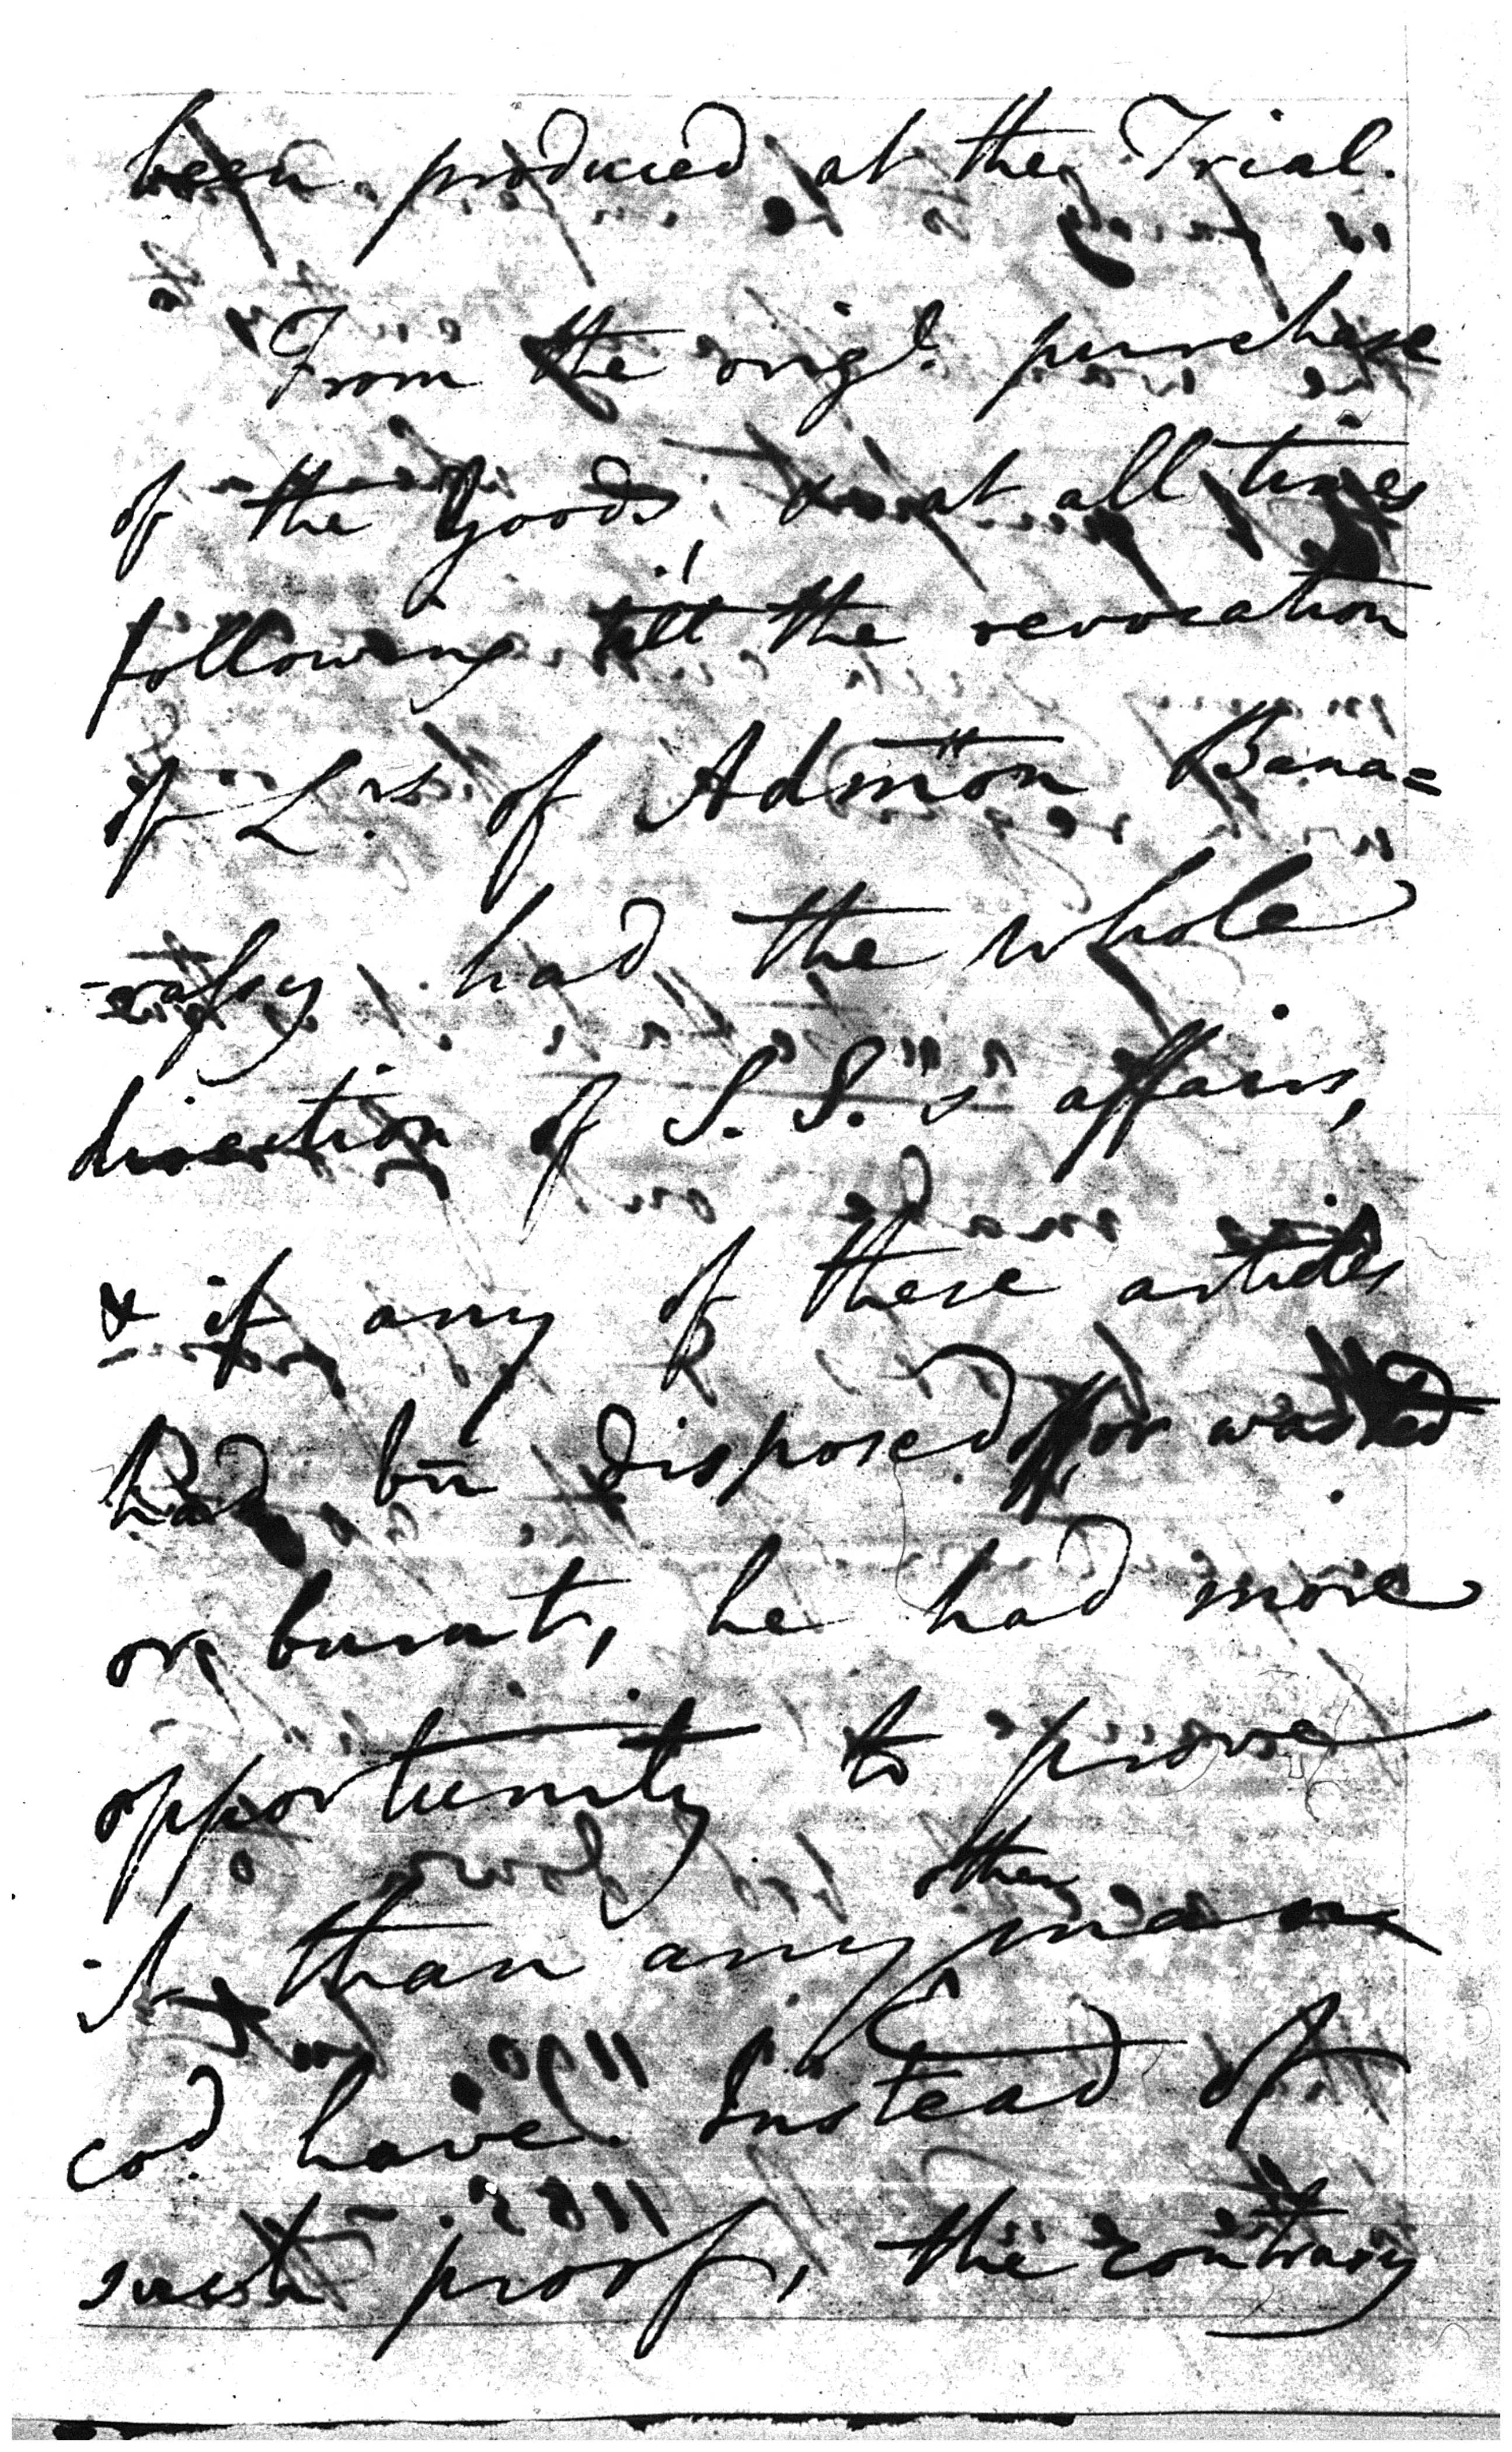 been produced at the Trial.
From the origl. purchase
of the Goods, & at all times
following till the revocation
of Lrs. of Admōn Bana=
-rassy had the whole
direction of S. S.'s affairs,
& if any of these articles
had bn̄ disposed of, or wasted
or burnt, he had more
opportunity to prove
it than any other man
cod. have. Instead of
such proof, the contrary